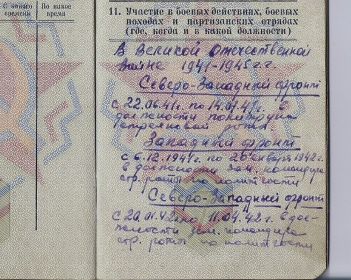 С какого времени
По какое время
11. Участие в боевых действиях, боевых
походах и партизанских отрядах
(где, когда и в какой должности)
В Великой Отечественной
войне 1941-1945 г.г.
Северо-Западный фронт
с 22.06.41г. по 14.07.41г. в
должности политрука
стрелковой роты.
Западный фронт
с 6.12.1941г по 26 января 1942г.
в должности зам. командира
стр. роты по политчасти
Северо-Западный фронт
с 20.01.42 по 11.04.42г. в дол-
жности зам. командира
стр. роты по политчасти